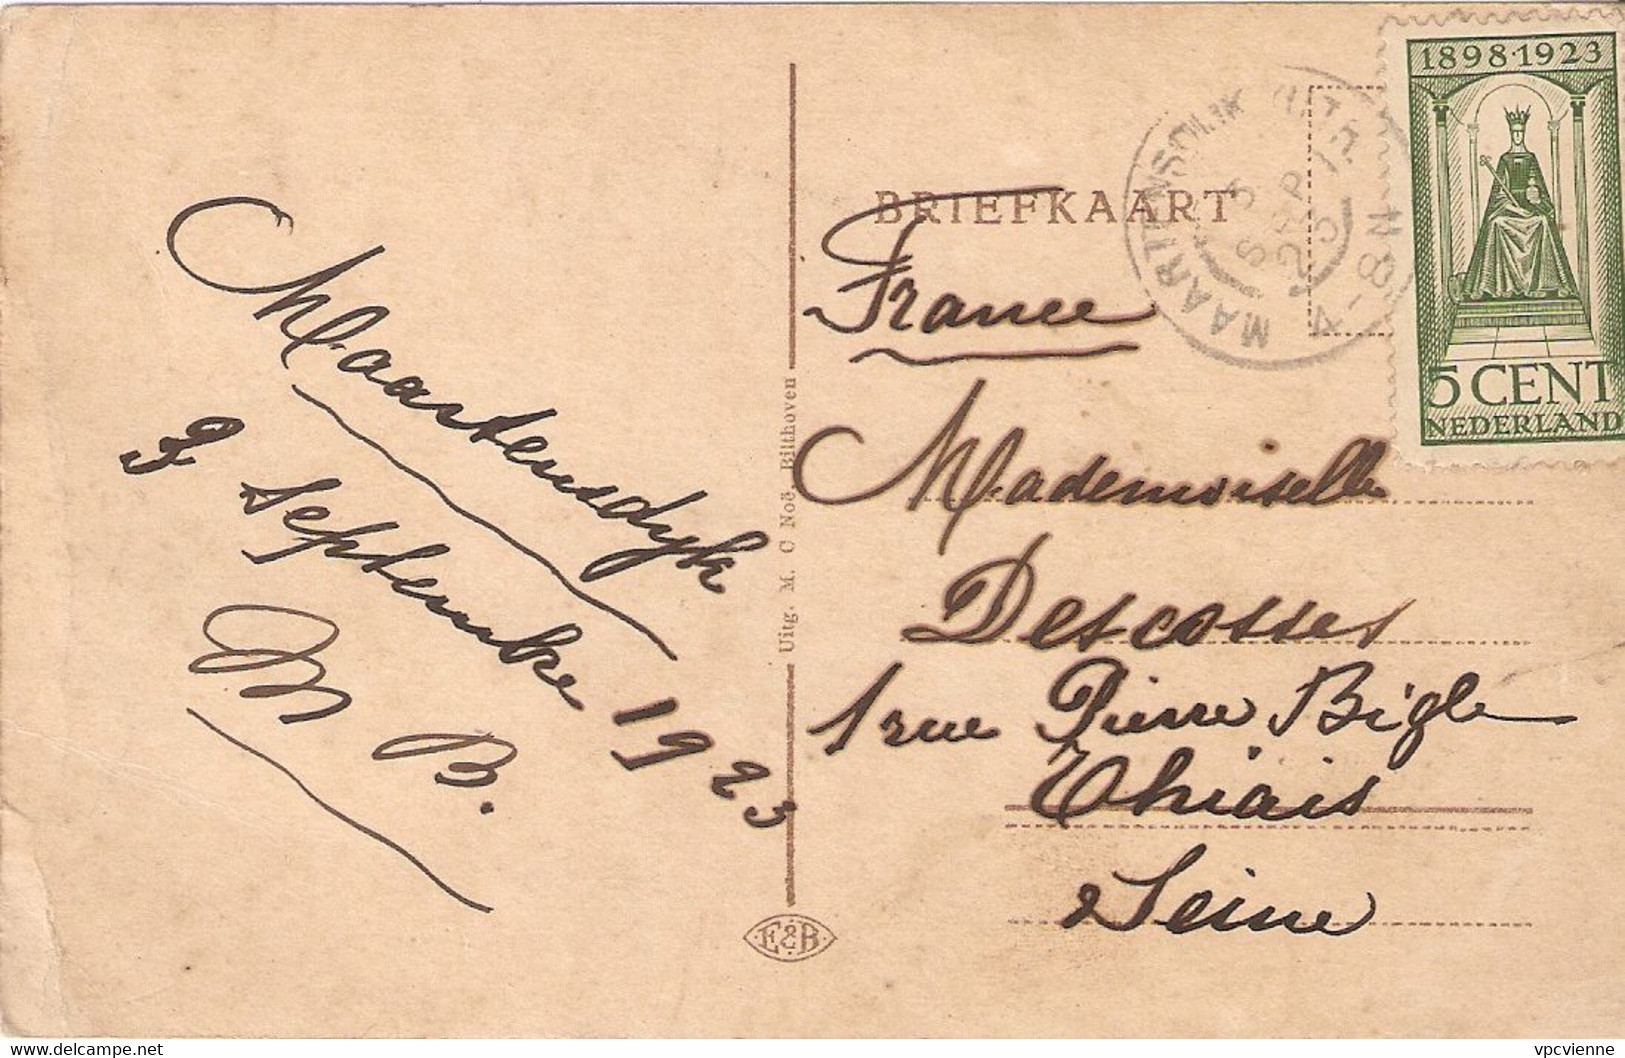 Maartensdyk
3 Septembre 1923
M B.
Uitg. M. C Noë, Bilthoven
E&B
BRIEFKAART
France
Mademoiselle
Descosses
1 rue Pierre Bigle
Thiais
Seine
MAARTENSDIJK
3 SEP 23
1898·1923
5 CENT
NEDERLAND
www.delcampe.net
vpcvienne